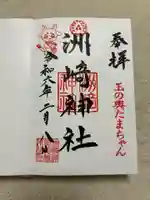 奉拝
玉の輿たまちゃん
洲崎神社
令和六年二月八日